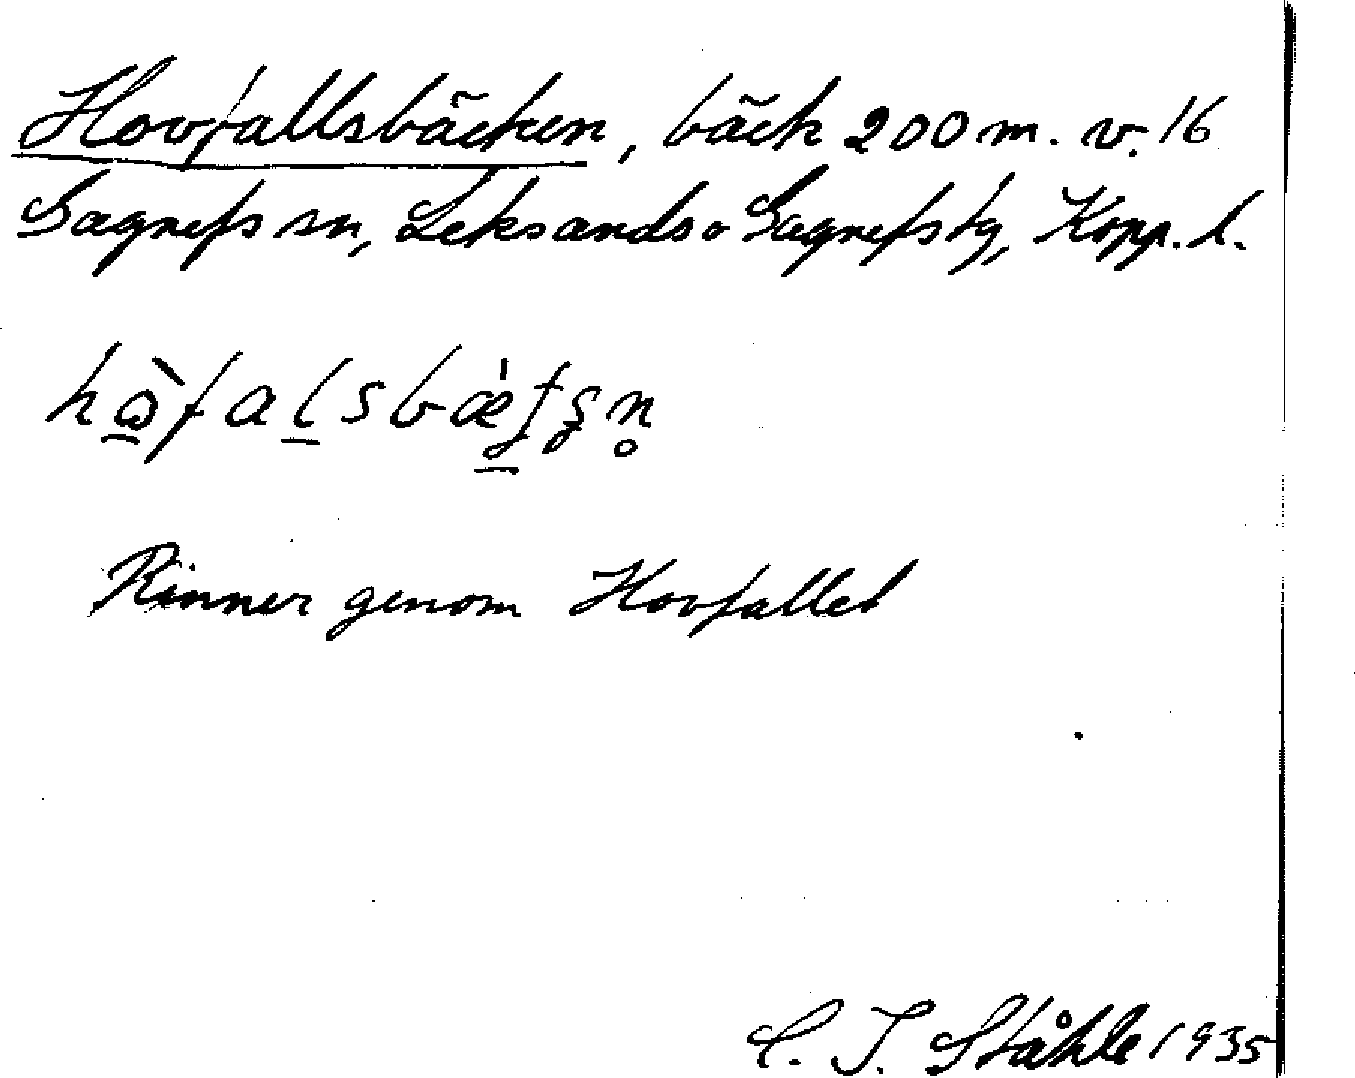 Hovfallsbäcken, bäck 200 m. v. 16
Gagnefs sn, Leksands o Gagnefs tg, Kopp. l.
Rinner genom Hovfallet
C. I. Ståhle 1935